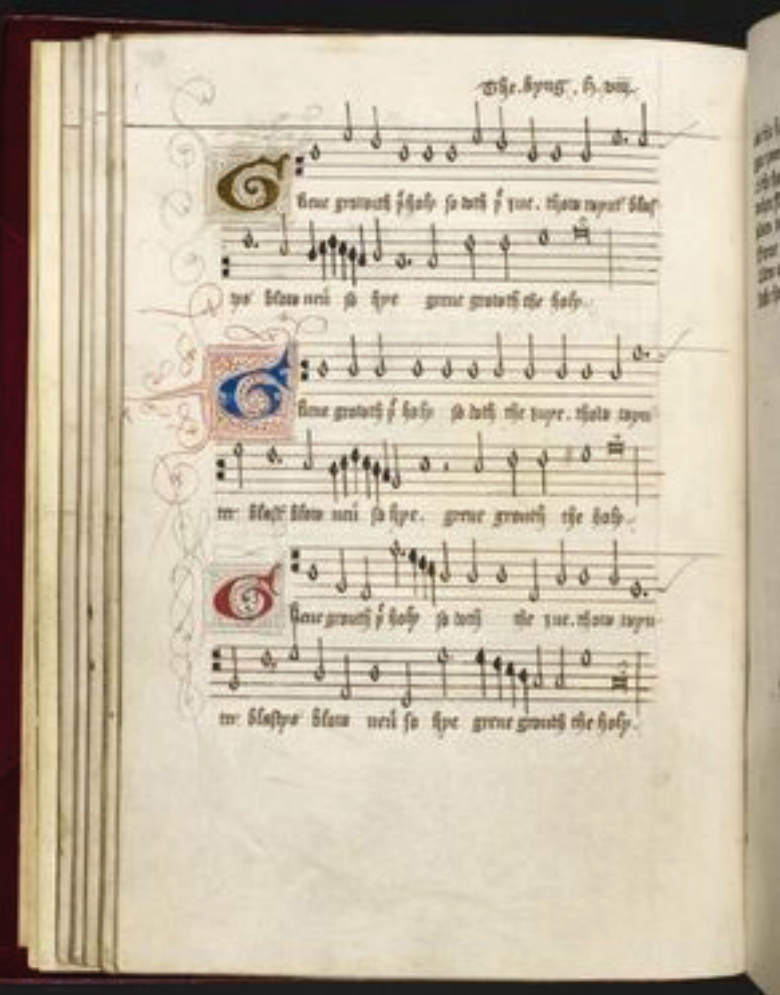 The kyng . h . viii .
Grene growith þe holy so doth þe iue . thow wynt blas
tys blow neu so hye grene growth the holy .
Grene growth þe holy so doth the iuye . thow wyn
ter blast blow neu so hye . grene growth the holy .
Grene growth þe holy so doth the iue . thow wyn
ter blastys blow neu so hye grene growth the holy .